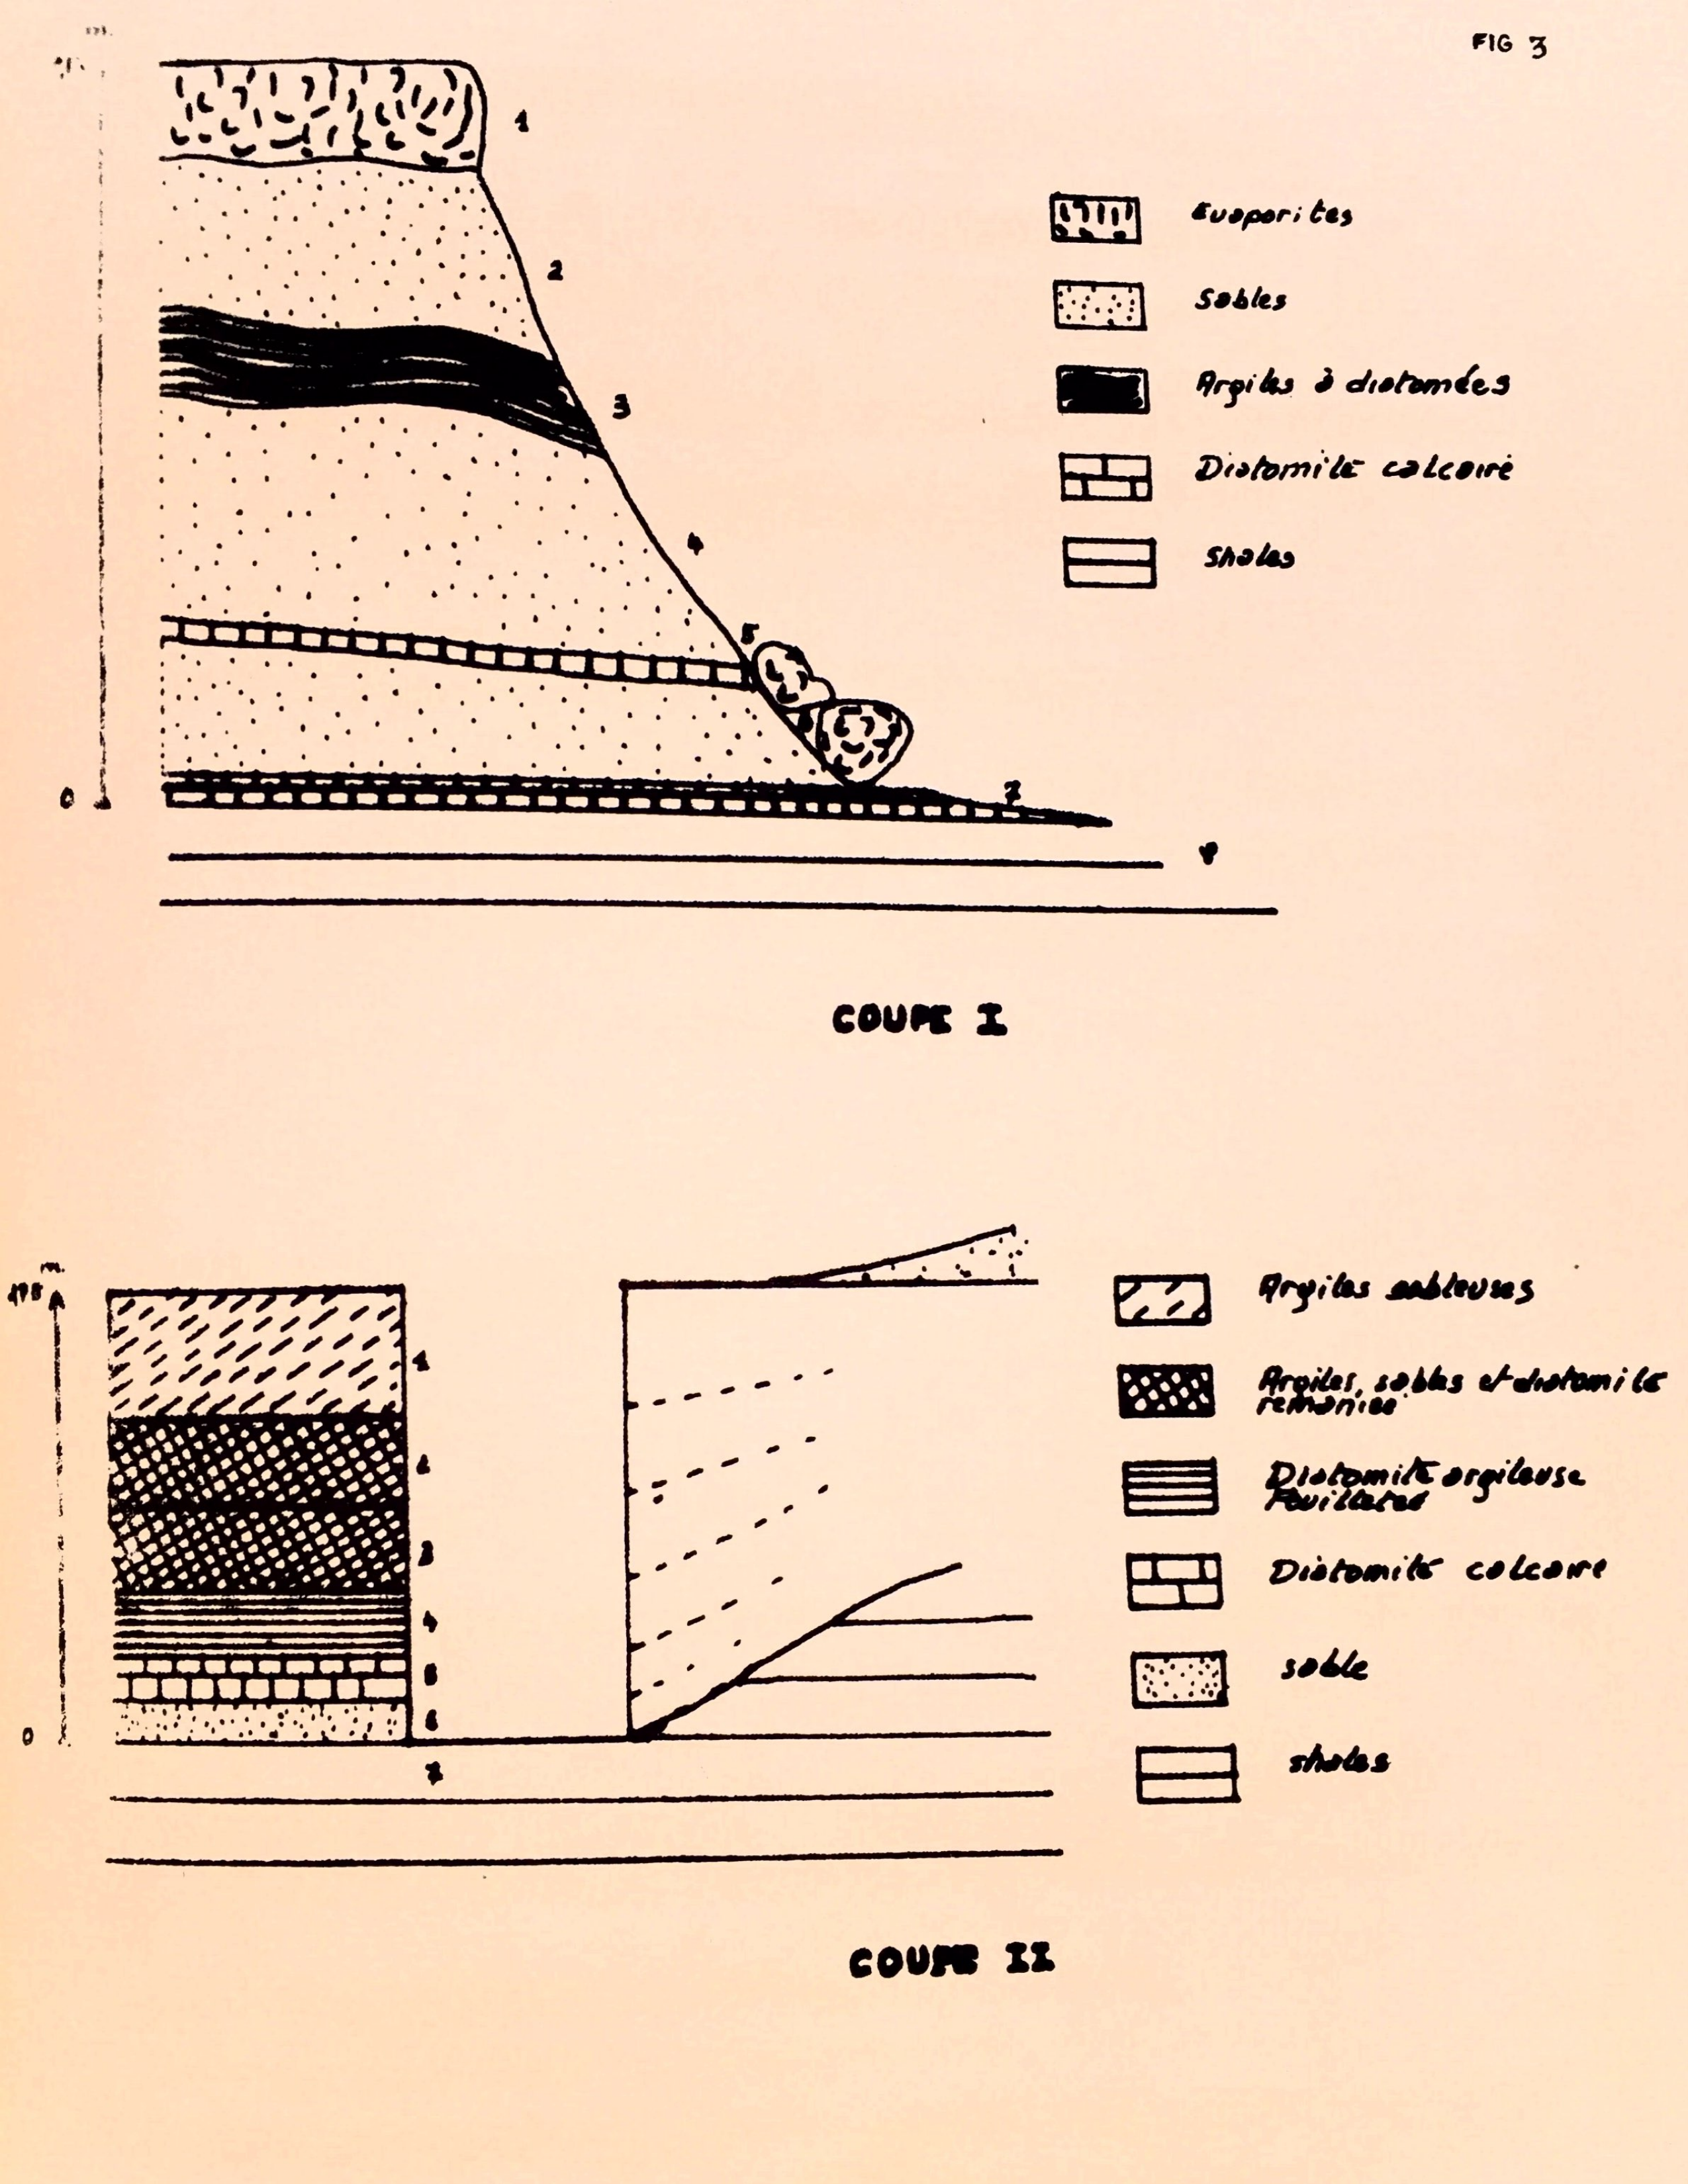 FIG 3
1
Evaporites
2
Sables
3
Argiles à diatomées
4
Diatomite calcaire
5
Shales
0
7
COUPE I
m.
Argiles sableuses
1
Argiles, sables et diatomite
remaniée
3
Diatomite argileuse
Feuilletée
4
Diatomite calcaire
sable
0
7
shales
COUPE II